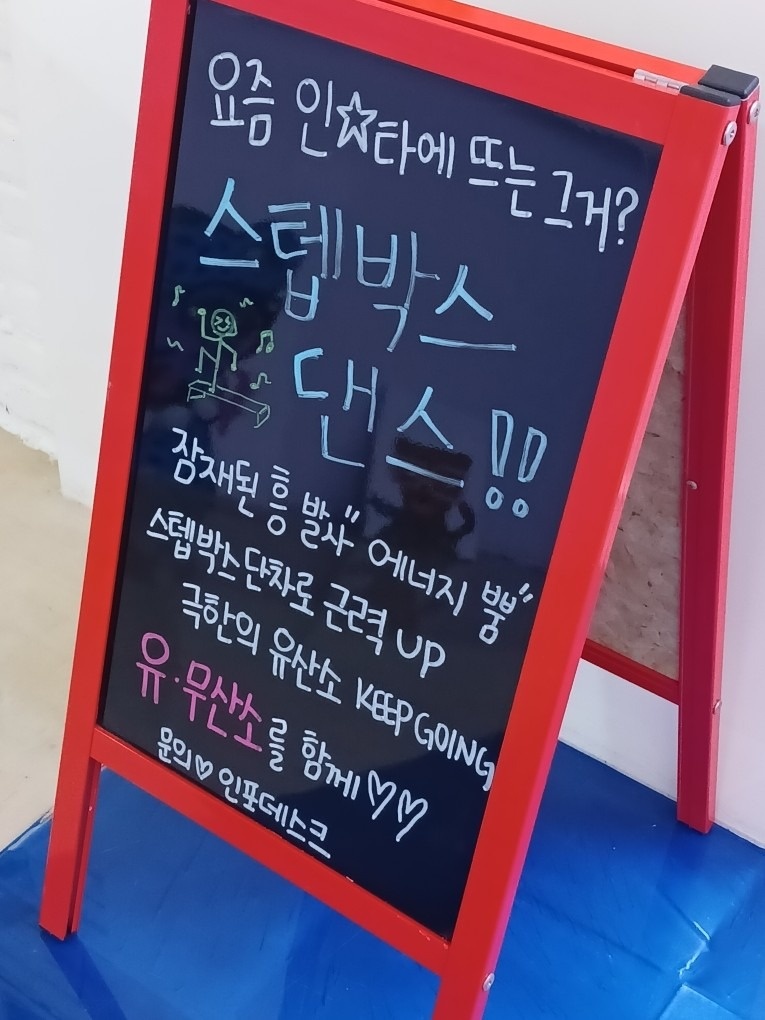 요즘 인☆타에 뜨는 그거?
스텝박스
댄스!!
잠재된 흥 발사" 에너지 뿜"
스텝박스 단차로 근력 UP
극한의 유산소 KEEP GOING
유·무산소를 함께♡♡
문의♡인포데스크